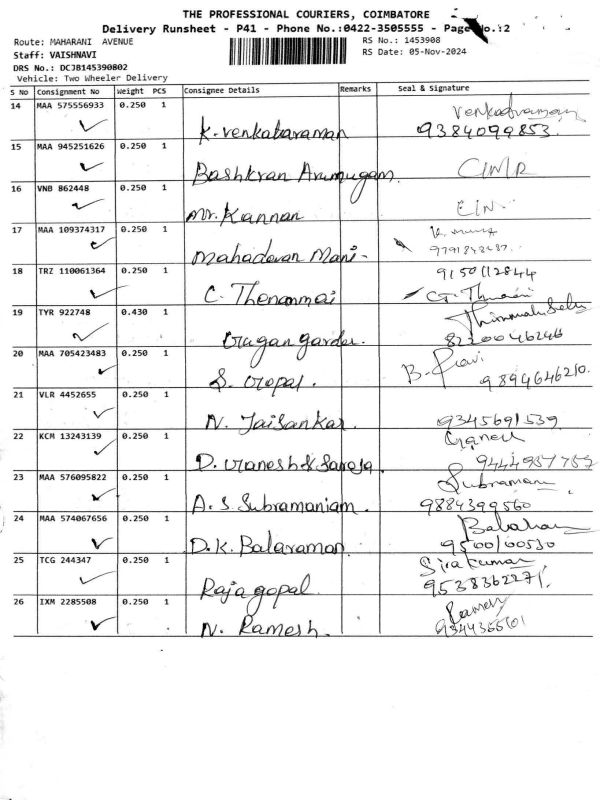 THE PROFESSIONAL COURIERS, COIMBATORE
Delivery Runsheet - P41 - Phone No.:0422-3505555 - Page No.:2
Route: MAHARANI AVENUE
RS No.: 1453908
Staff: VAISHNAVI
RS Date: 05-Nov-2024
DRS No.: DCJB145390802
Vehicle: Two Wheeler Delivery
S No Consignment No Weight PCS Consignee Details Remarks Seal & Signature
14 MAA 575556933 0.250 1
Venkatraman
K. Venkataraman 9384099853.
15 MAA 945251626 0.250 1
Bashkran Arumugam.
16 VNB 862448 0.250 1
Mr. Kannan
17 MAA 109374317 0.250 1
Mahadevan Mani-
18 TRZ 110061364 0.250 1 9150112844
C. Thenanmai
19 TYR 922748 0.430 1
8220046246
20 MAA 705423483 0.250 1
S. Gopal. 9894646210.
21 VLR 4452655 0.250 1
N. Jaisankar. 9345691539
22 KCM 13243139 0.250 1 Ganesh
D. Ganesh & Saroja. 9444957757
23 MAA 576095822 0.250 1 Subramani
A. S. Subramaniam. 9884399560
24 MAA 574067656 0.250 1
D. K. Balaraman 9500100530
25 TCG 244347 0.250 1 Sivakumar
Rajagopal 9538362271.
26 IXM 2285508 0.250 1 Ramesh
N. Ramesh.